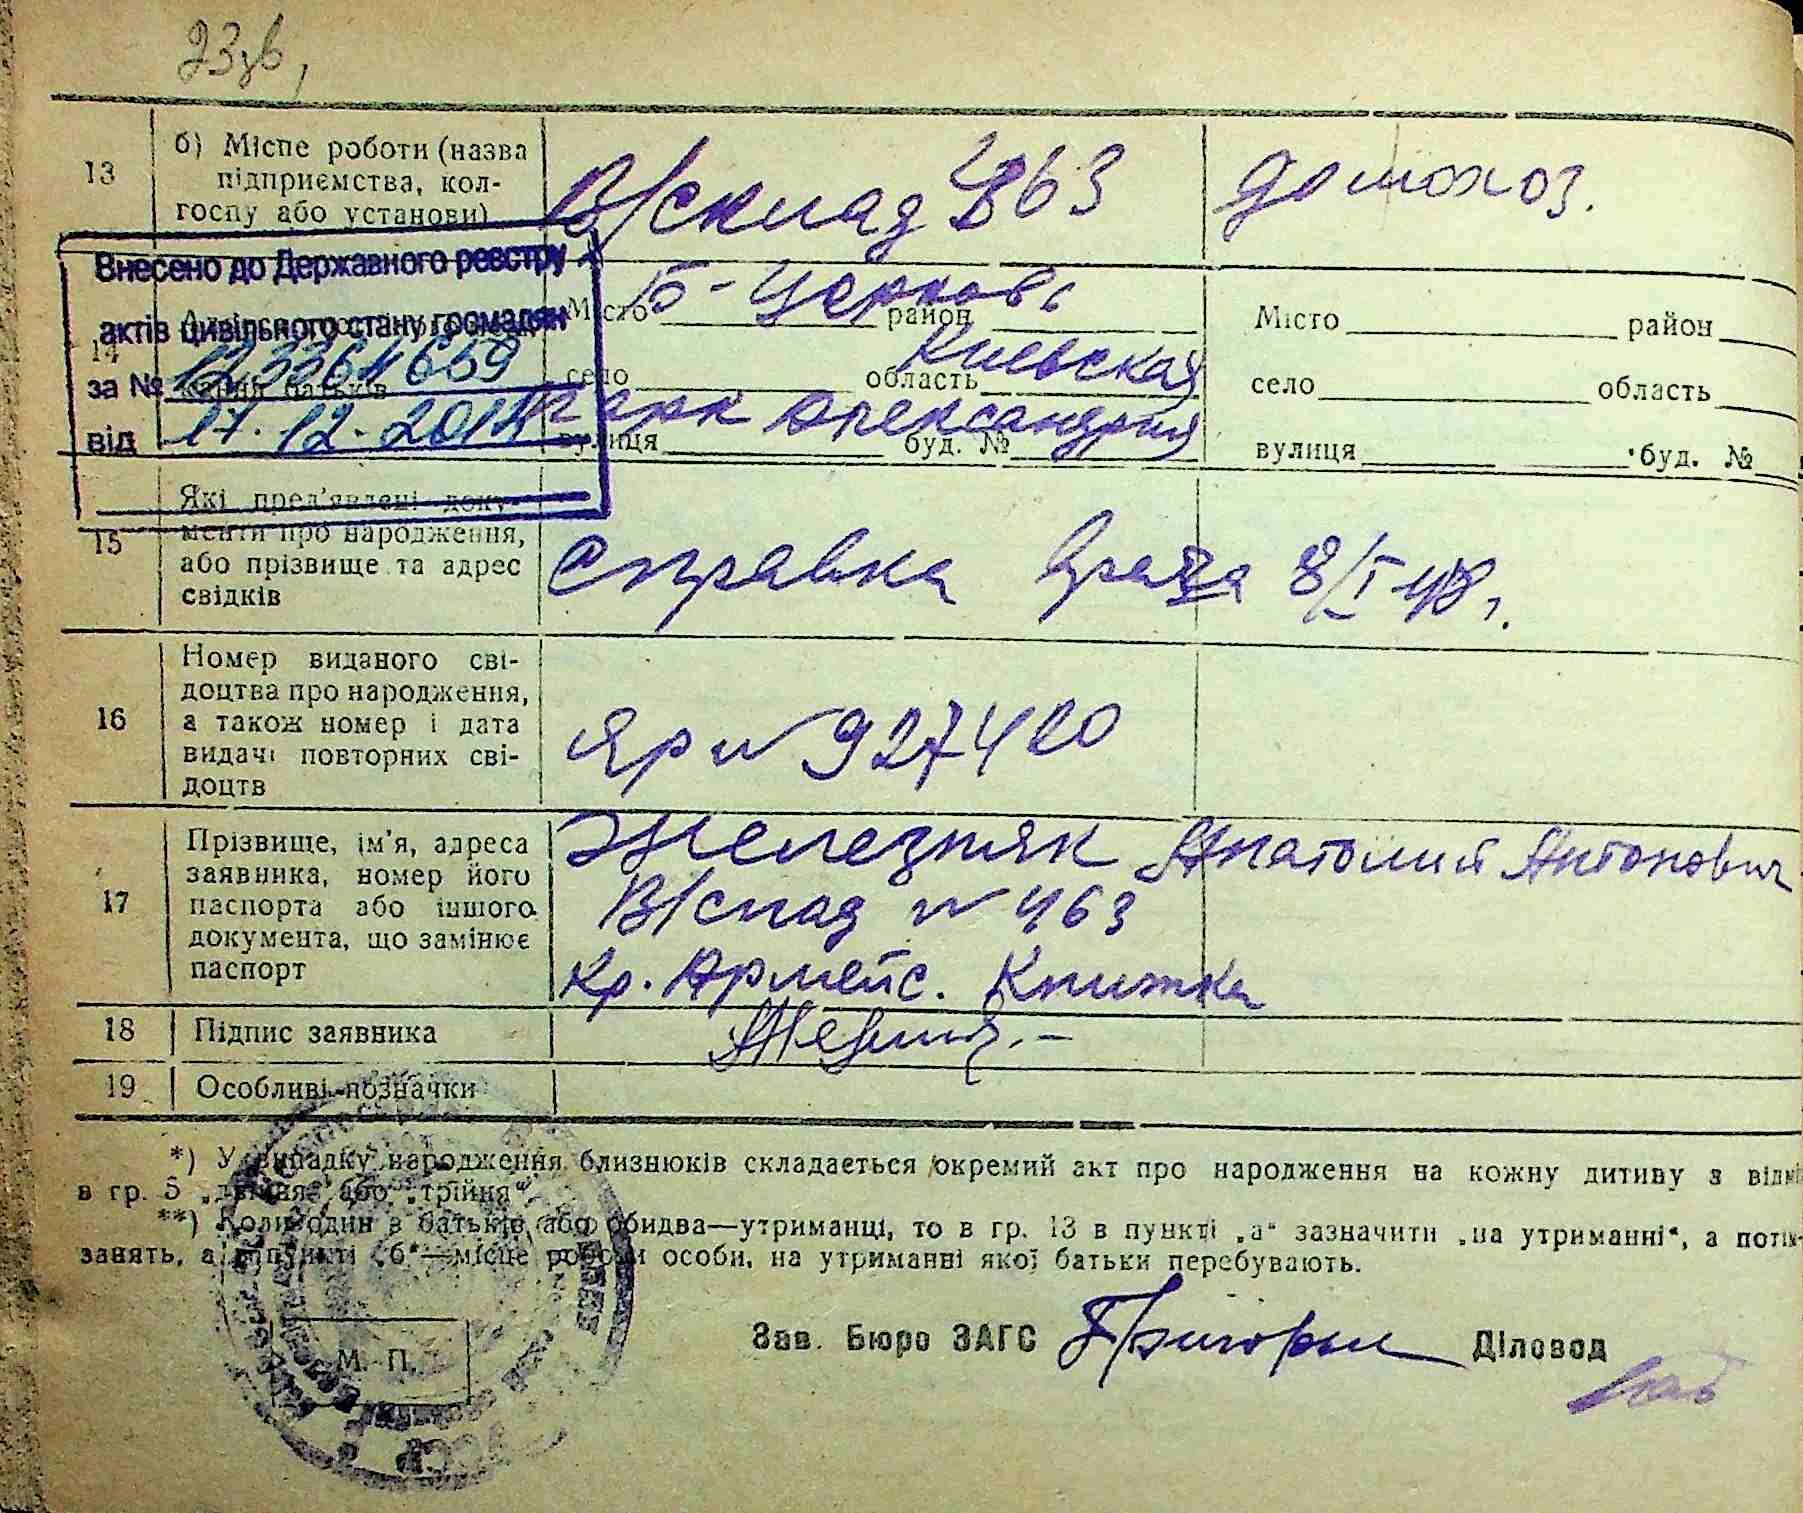 23зв,
13
б) Місце роботи (назва
підприємства, кол-
госпу або установи)
В/склад 463
домохоз.
Внесено до Державного реєстру
актів цивільного стану громадян
за № 1233641659
від 17.12.2014
14
Місто Б-Церковь район
село область Киевская
парк Александрия
вулиця буд. №
Місто район
село область
вулиця буд. №
15
Які пред'явлені доку-
менти про народження,
або прізвище та адрес
свідків
Справка врача 8/I 48 г.
16
Номер виданого сві-
доцтва про народження,
а також номер і дата
видачі повторних сві-
доцтв
Яр № 927420
17
Прізвище, ім'я, адреса
заявника, номер його
паспорта або іншого
документа, що замінює
паспорт
Железняк Анатолий Антонович
В/склад № 463
Кр. Армейс. Книжка
18
Підпис заявника
19
Особливі позначки
*) У випадку народження близнюків складається окремий акт про народження на кожну дитину з
в гр. 5 „двійня" або „трійня".
**) Коли один з батьків (або обидва—утриманці, то в гр. 13 в пункті „а" зазначити „на утриманні", а потім
занять, а в пункті „б"—місце роботи особи, на утриманні якої батьки перебувають.
М. П.
Зав. Бюро ЗАГС
Діловод